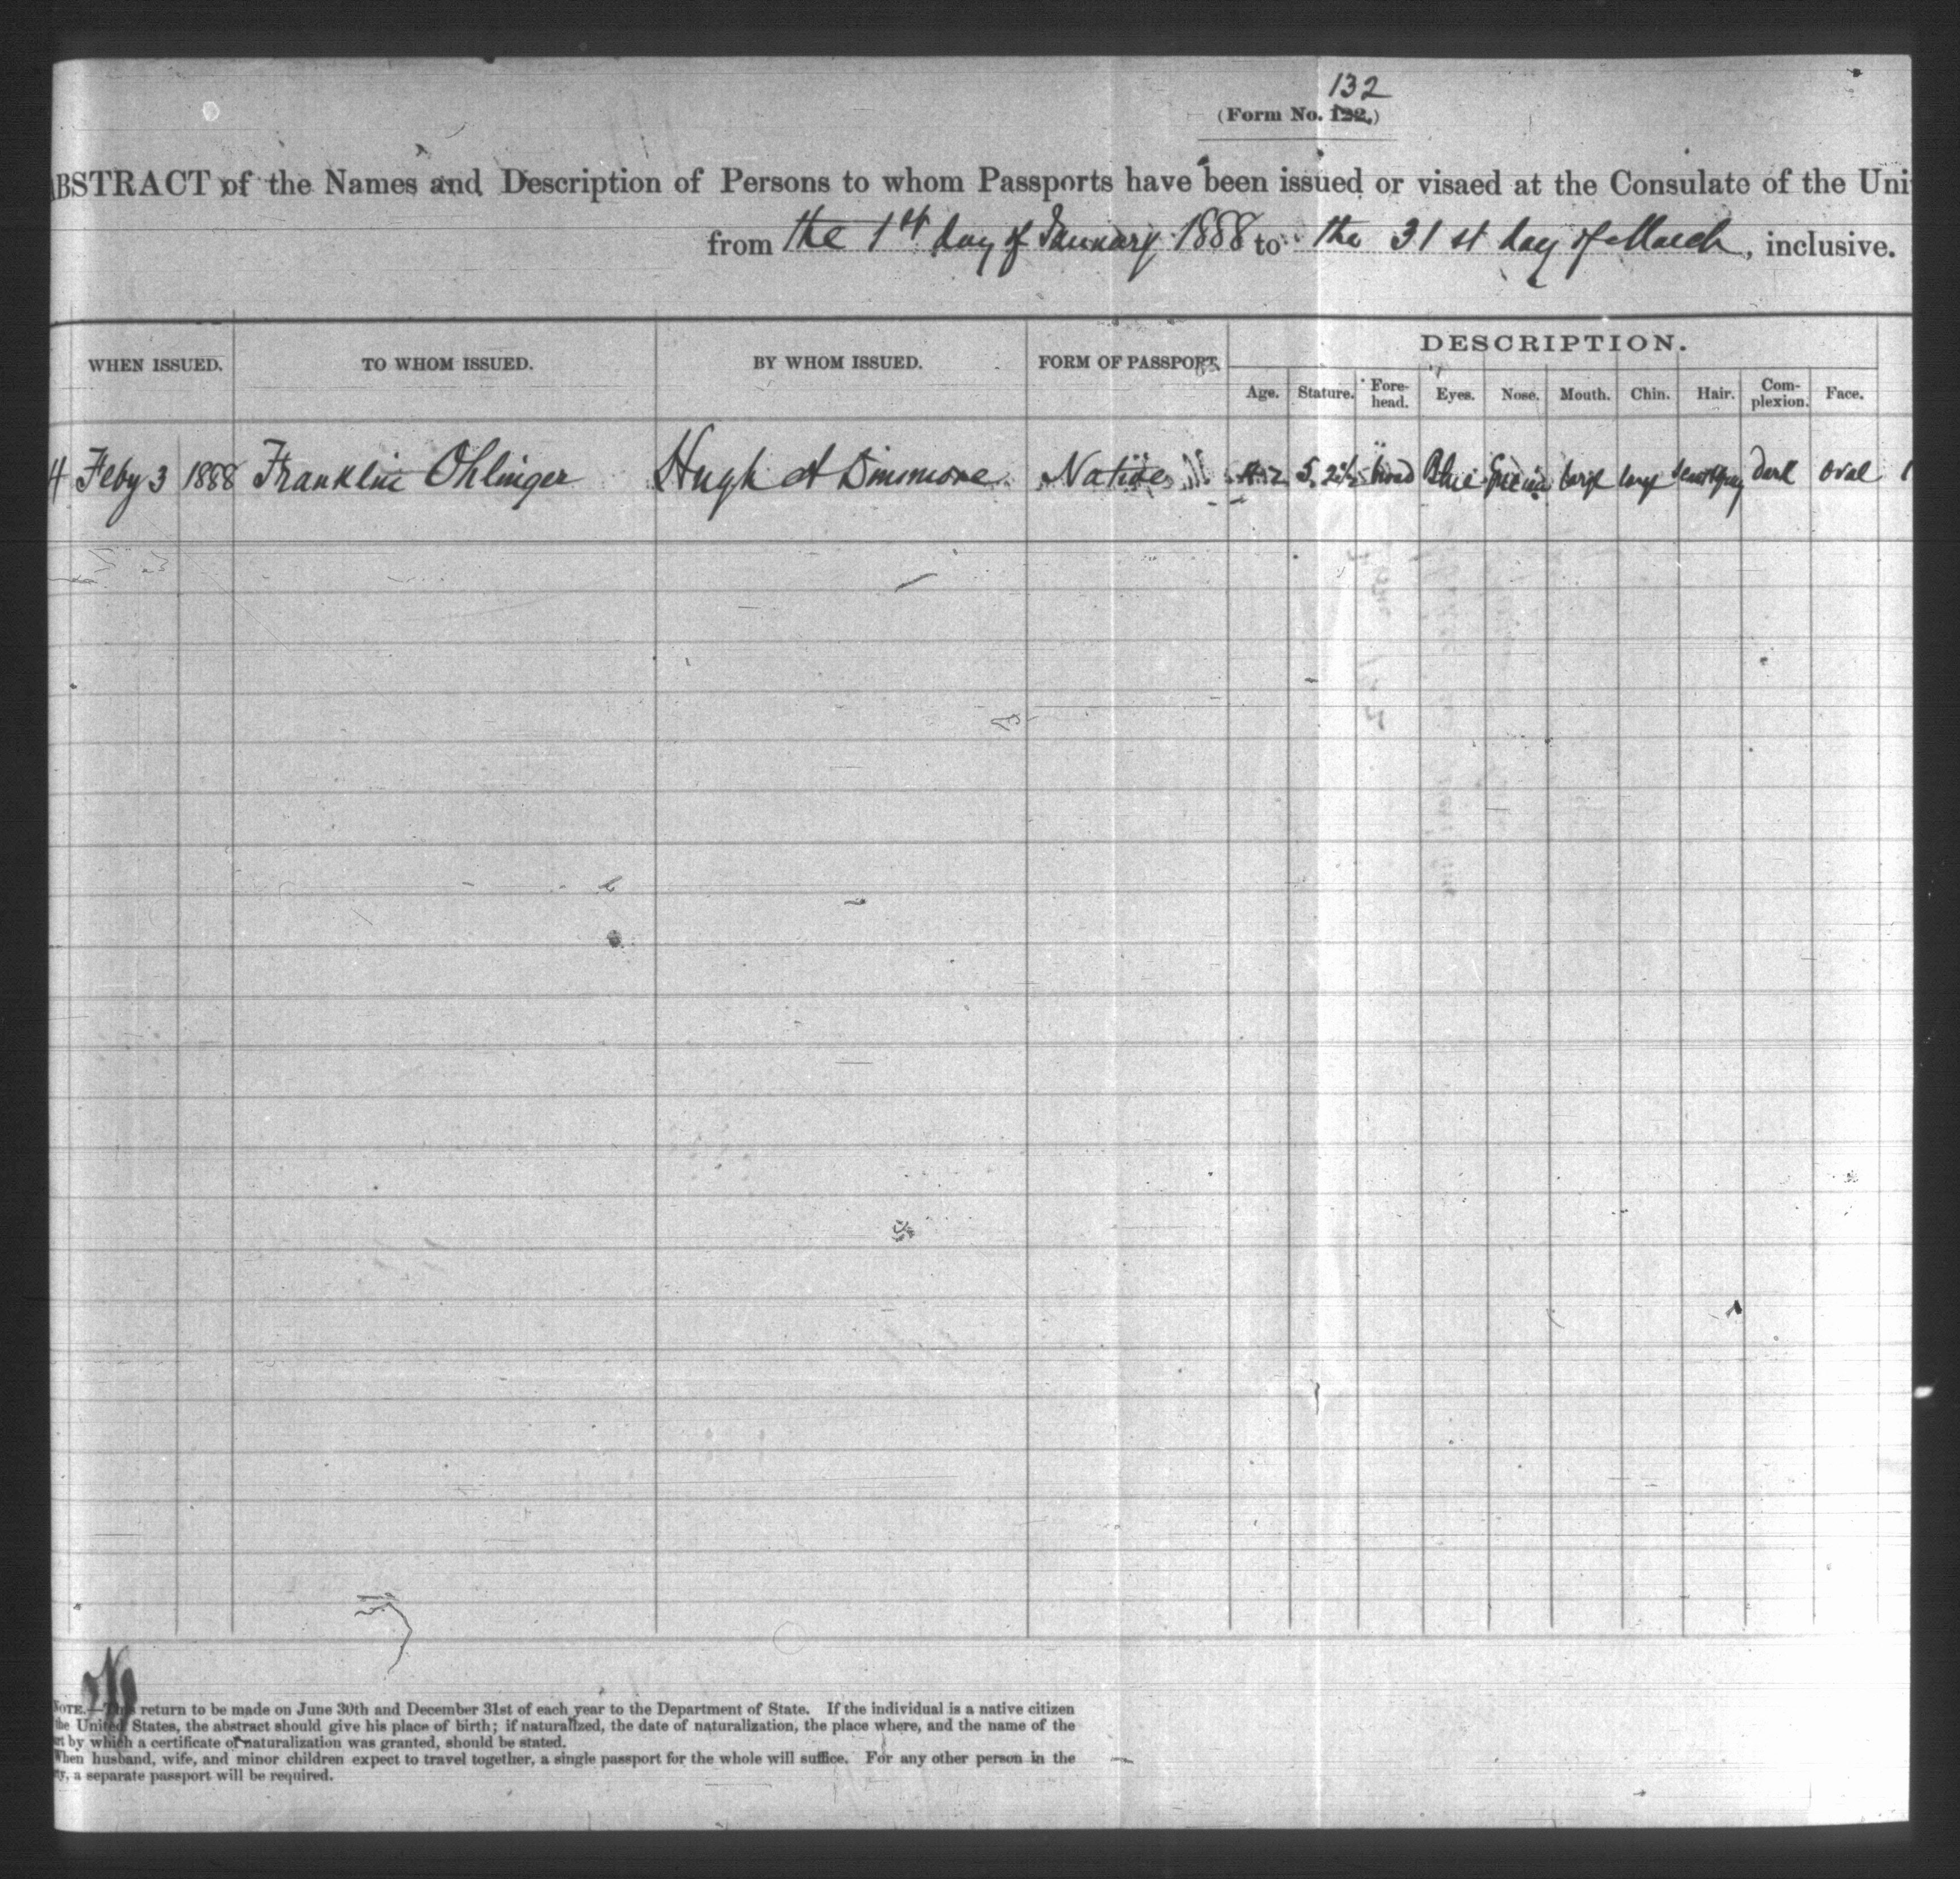 132
(Form No. 122.)
ABSTRACT of the Names and Description of Persons to whom Passports have been issued or visaed at the Consulate of the Uni
from the 1st day of January 1888 to the 31st day of March, inclusive.
DESCRIPTION.
WHEN ISSUED. TO WHOM ISSUED. BY WHOM ISSUED. FORM OF PASSPORT.
Age. Stature. Fore-head. Eyes. Nose. Mouth. Chin. Hair. Com-plexion. Face.
4 Feby 3 1888 Franklin Ohlinger Hugh A Dinsmore Native 42 5, 2½ broad Blue large long dark oval
NOTE.—This return to be made on June 30th and December 31st of each year to the Department of State. If the individual is a native citizen
the United States, the abstract should give his place of birth; if naturalized, the date of naturalization, the place where, and the name of the
rt by which a certificate of naturalization was granted, should be stated.
When husband, wife, and minor children expect to travel together, a single passport for the whole will suffice. For any other person in the
ty, a separate passport will be required.